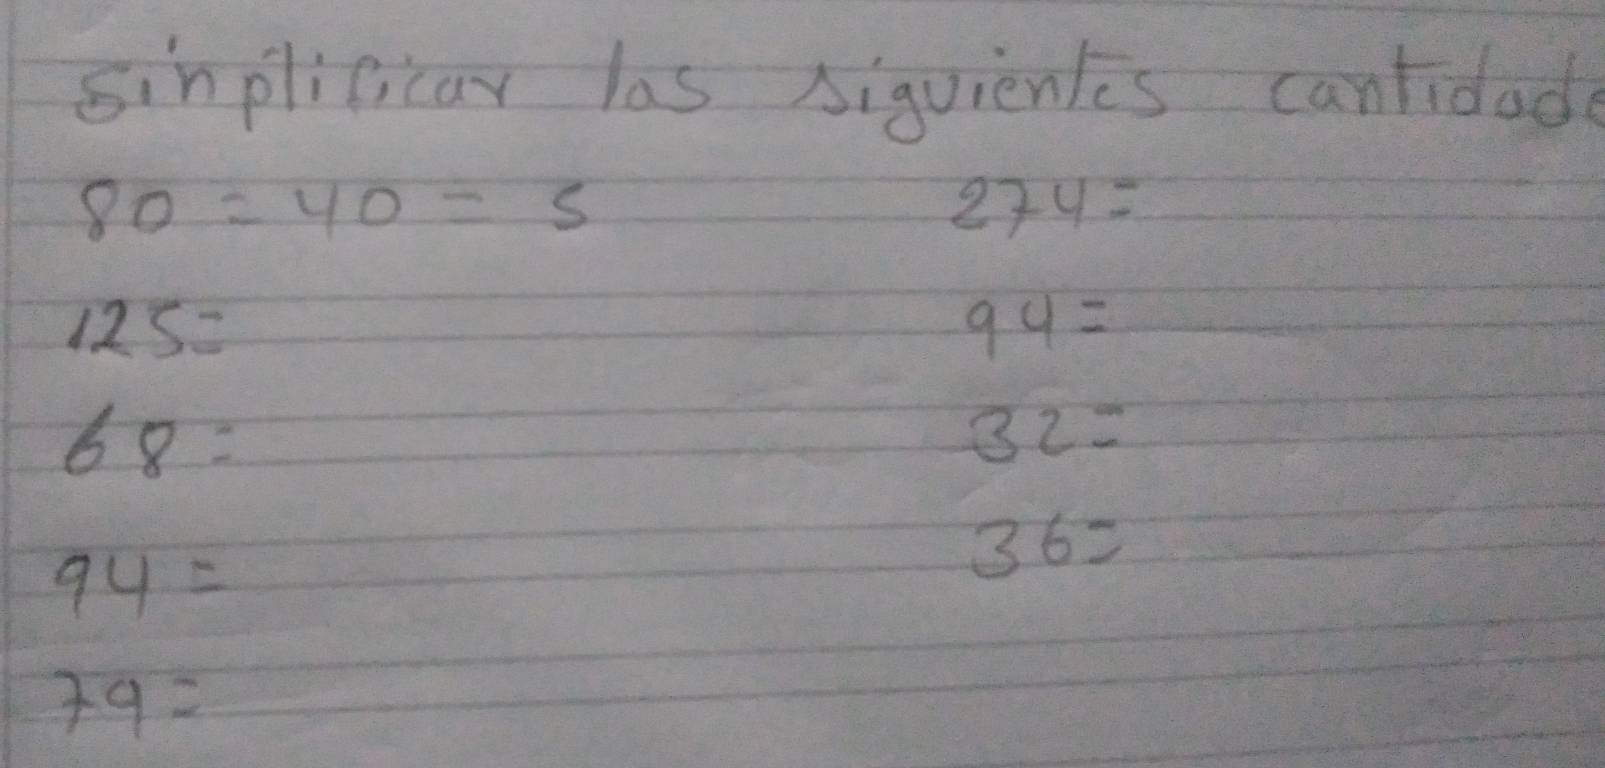 sinplificar las siguientes cantidade
80 = 40 = 5 274 =
125 = 94 =
68 = 32 =
94 = 36 =
79 =